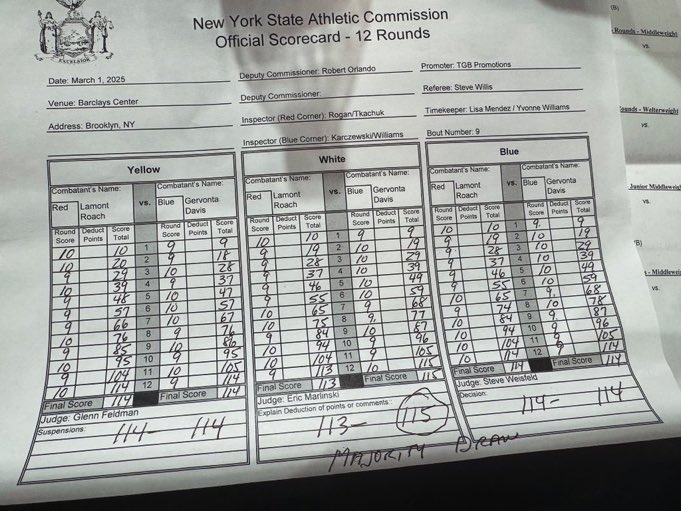 EXCELSIOR
New York State Athletic Commission
Official Scorecard - 12 Rounds
Date: March 1, 2025
Venue: Barclays Center
Address: Brooklyn, NY
Deputy Commissioner: Robert Orlando
Deputy Commissioner:
Inspector (Red Corner): Rogan/Tkachuk
Inspector (Blue Corner): Karczewski/Williams
Promoter: TGB Promotions
Referee: Steve Willis
Timekeeper: Lisa Mendez / Yvonne Williams
Bout Number: 9
Yellow
Combatant's Name: vs. Combatant's Name:
Red Lamont Roach Blue Gervonta Davis
Round Score Deduct Points Score Total Round Score Deduct Points Score Total
10 10 1 9 9
10 20 2 9 18
9 29 3 10 28
10 39 4 9 37
9 48 5 10 47
9 57 6 10 57
9 66 7 10 67
10 76 8 9 76
9 85 9 10 86
10 95 10 9 95
9 104 11 10 105
10 114 12 9 114
Final Score 114 Final Score 114
Judge: Glenn Feldman
Suspensions:
114 - 114
White
Combatant's Name: vs. Combatant's Name:
Red Lamont Roach Blue Gervonta Davis
Round Score Deduct Points Score Total Round Score Deduct Points Score Total
10 10 1 9 9
9 19 2 10 19
9 28 3 10 29
9 37 4 10 39
9 46 5 10 49
9 55 6 10 59
10 65 7 9 68
10 75 8 9 77
9 84 9 10 87
10 94 10 9 96
10 104 11 9 105
9 113 12 10 115
Final Score 113 Final Score 115
Judge: Eric Marlinski
Explain Deduction of points or comments:
113 - 115
Blue
Combatant's Name: vs. Combatant's Name:
Red Lamont Roach Blue Gervonta Davis
Round Score Deduct Points Score Total Round Score Deduct Points Score Total
10 10 1 9 9
9 19 2 10 19
9 28 3 10 29
9 37 4 10 39
9 46 5 10 49
9 55 6 10 59
10 65 7 9 68
9 74 8 10 78
10 84 9 9 87
10 94 10 9 96
10 104 11 9 105
10 114 12 9 114
Final Score 114 Final Score 114
Judge: Steve Weisfeld
Decision:
114 - 114
MAJORITY DRAW
(B)
Rounds - Middleweight
vs.
Rounds - Welterweight
vs.
Junior Middleweight
vs.
(B)
s - Middleweight
vs.